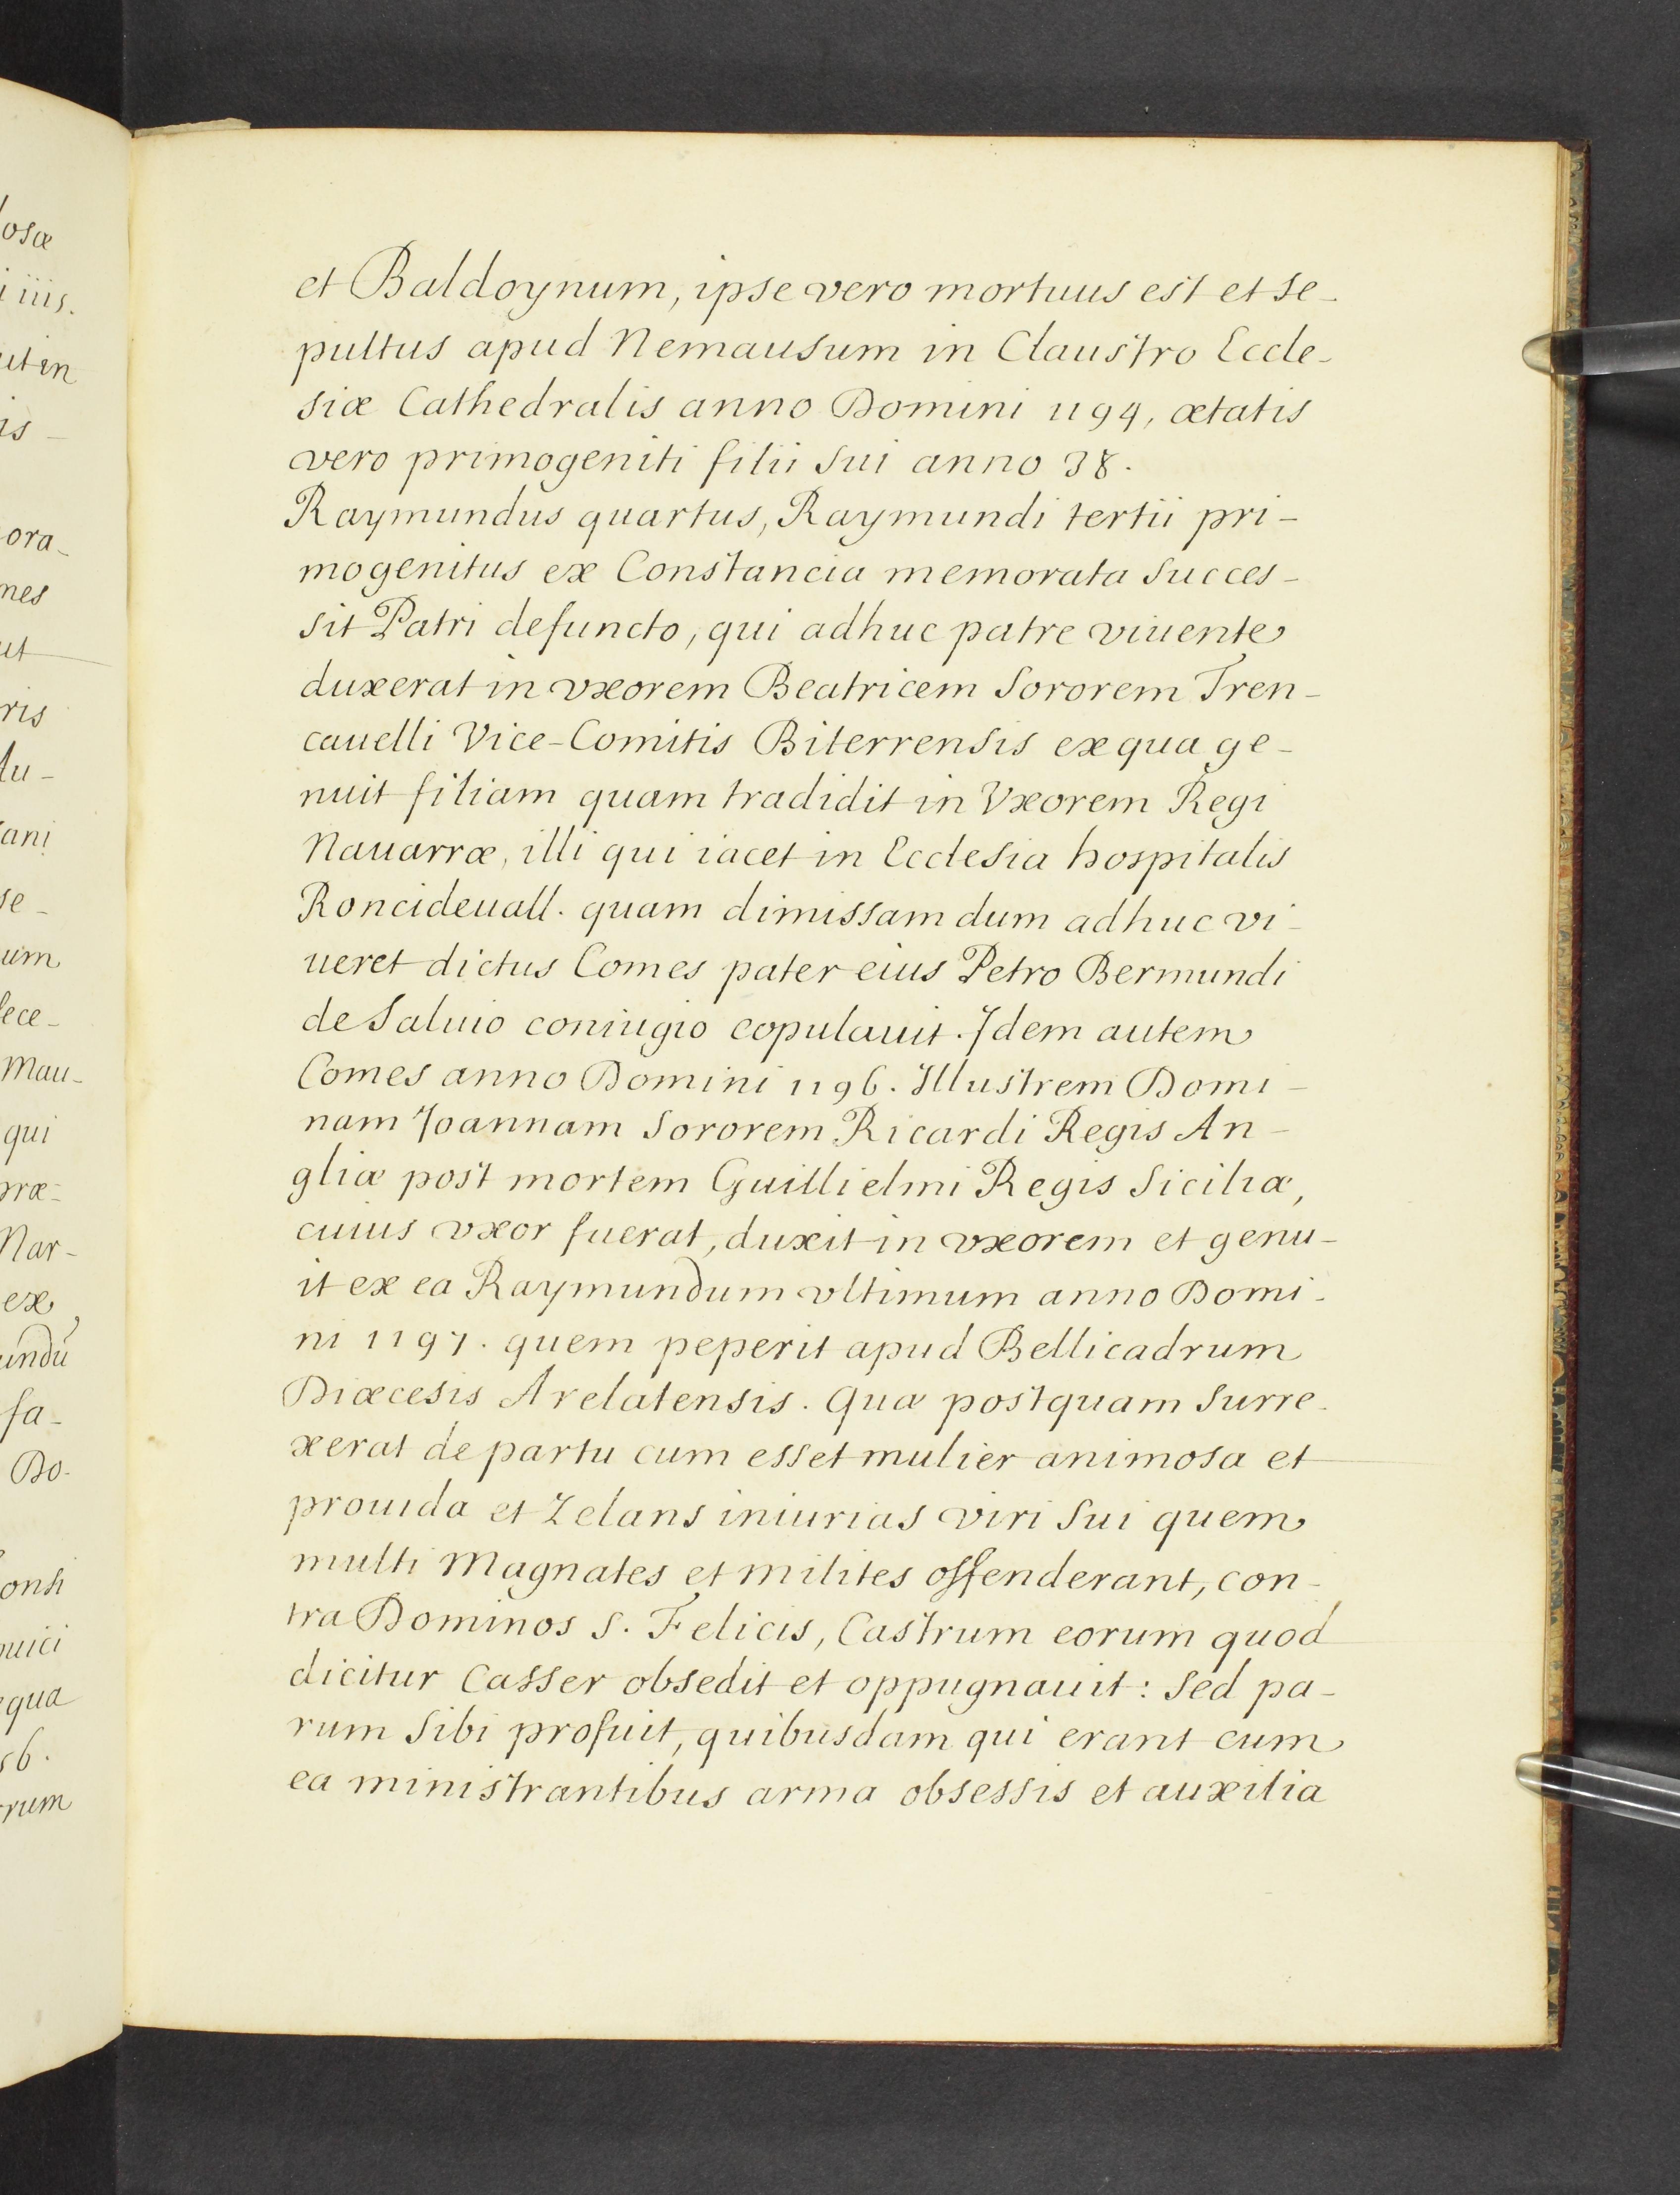 et Baldoynum, ipse vero mortuus est et se-
pultus apud Nemausum in Claustro Eccle-
siæ Cathedralis anno Domini 1194, ætatis
vero primogeniti filii sui anno 38.
Raymundus quartus, Raymundi tertii pri-
mogenitus ex Constancia memorata succes-
sit Patri defuncto, qui adhuc patre viuente
duxerat in vxorem Beatricem Sororem Tren-
cauelli Vice-Comitis Biterrensis ex qua ge-
nuit filiam quam tradidit in Vxorem Regi
Nauarræ, illi qui iacet in Ecclesia hospitalis
Roncideuall. quam dimissam dum adhuc vi-
ueret dictus Comes pater eius Petro Bermundi
de Saluio coniugio copulauit. Idem autem
Comes anno Domini 1196. Illustrem Domi-
nam Joannam Sororem Ricardi Regis An-
gliæ post mortem Guillielmi Regis Siciliæ,
cuius vxor fuerat, duxit in vxorem et genu-
it ex ea Raymundum vltimum anno Domi-
ni 1197. quem peperit apud Bellicadrum
Diœcesis Arelatensis. Quæ postquam surre-
xerat de partu cum esset mulier animosa et
prouida et Zelans iniurias viri sui quem
multi Magnates et milites offenderant, con-
tra Dominos S. Felicis, Castrum eorum quod
dicitur Casser obsedit et oppugnauit: sed pa-
rum sibi profuit, quibusdam qui erant cum
ea ministrantibus arma obsessis et auxilia